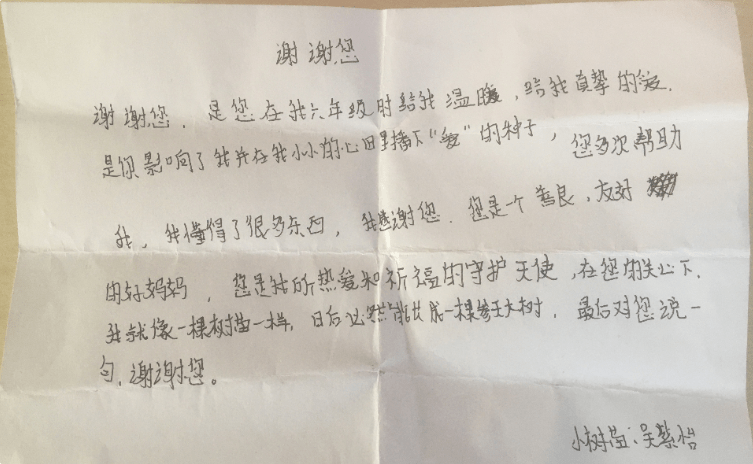 谢谢您
谢谢您，是您在我六年级时给我温暖，给我真挚的爱.
是你影响了我并在我小小的心田里播下“爱”的种子，您多次帮助
我，我懂得了很多东西，我感谢您．您是一个善良，友好
的好妈妈，您是我所热爱和祈福的守护天使，在您的关心下．
我就像一棵树苗一样，日后必然能长成一棵参天大树．最后对您说一
句，谢谢您。
小树苗：吴紫怡